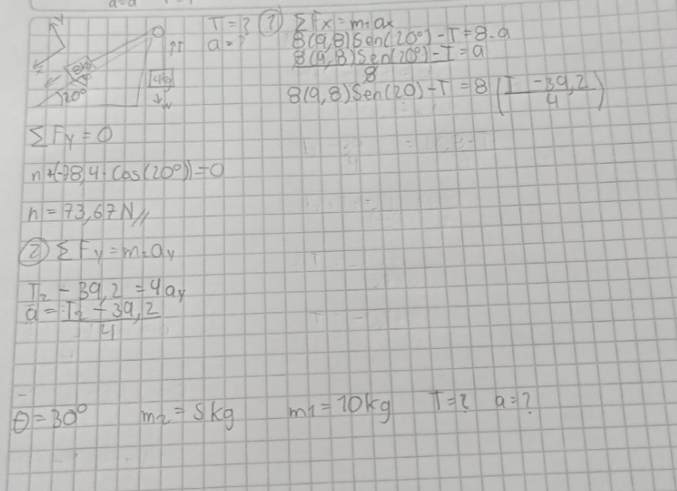 a=a
T=? ① ΣFx=m₁ax
a=?
8(9,8)Sen(20°)-T=8·a
8(9,8)Sen(20°)-T=a
8
8(9,8)Sen(20)-T=8(T-39,2)
4
y
8kg
20°
4kg
w
ΣFy=0
n+(-78,4·Cos(20°))=0
n=73,67N//
② ΣFy=m₂ay
T₂-39,2=4ay
a=T₂-39,2
4
θ=30° m₂=5kg m₁=10kg T=? a=?